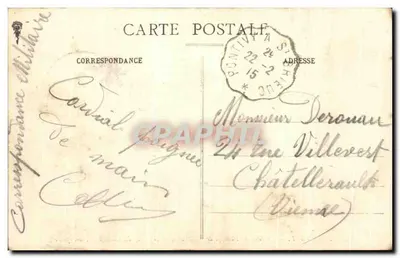 CARTE POSTALE
CORRESPONDANCE
ADRESSE
PONTIVY A ST BRIEUC
2E
22 -2
15
Correspondance Militaire
Cordial poignée
de main
Monsieur Derouau
24 rue Villevest
Châtellerault
(Vienne)
CPAPHIL